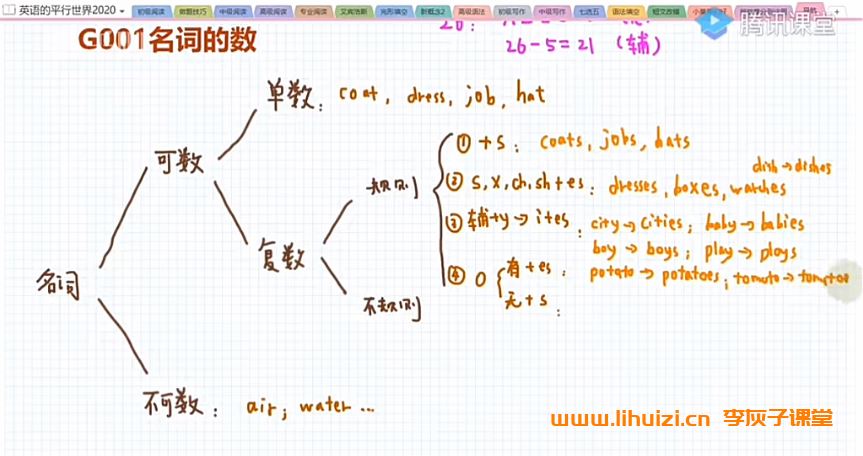 英语的平行世界2020
初级阅读 做题技巧 中级阅读 高级阅读 专业阅读 艾宾浩斯 完形填空 新概念2 高级语法 初级写作 中级写作 七选五 语法填空 短文改错
腾讯课堂
26 - 5 = 21 (辅)
G001名词的数
单数: coat, dress, job, hat
可数
① +s: coats, jobs, hats
dish → dishes
规则
② s, x, ch, sh + es: dresses, boxes, watches
③ 辅+y → i+es: city → cities; baby → babies
boy → boys; play → plays
复数
④ o 有+es: potato → potatoes; tomato → tomatoe
无+s:
名词
不规则
不可数: air; water ...
www.lihuizi.cn 李灰子课堂